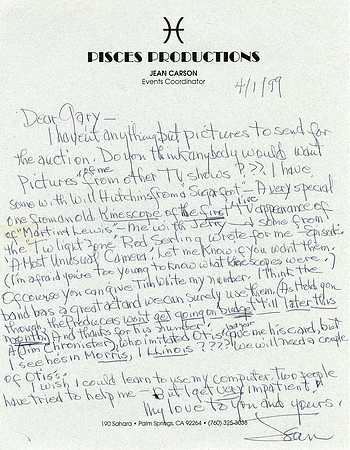 PISCES PRODUCTIONS
JEAN CARSON
Events Coordinator
4/1/99
Dear Gary—
I haven't anything but pictures to send for
the auction. Do you think anybody would want
Pictures of me from other TV shows???. I have
some with Will Hutchins from "Sugarfoot" - A very special
one from an old Kinescope of the first live TV appearance
of "Martin & Lewis" - Me with Jerry - some from
the "Twilight Zone" Rod Serling wrote for me - episode
"A Most Unusual Camera". Let me know if you want them.
(I'm afraid you're too young to know what Kinescopes were.)
Of course you can give Tim White my number. I think the
band has a great act and we can surely use them. As I told you
though, the Producers won't get going on budget 'till later this
month. And thanks for his number.
A (Jim Chronister), who imitated Otis last year gave me his card, but
I see he's in Morris, Illinois???? we will need a couple
of Otis's.
I wish I could learn to use my computer. Two people
have tried to help me - But I get very impatient.
My love to you and yours.
Jean
190 Sahara • Palm Springs, CA 92264 • (760) 325-3038